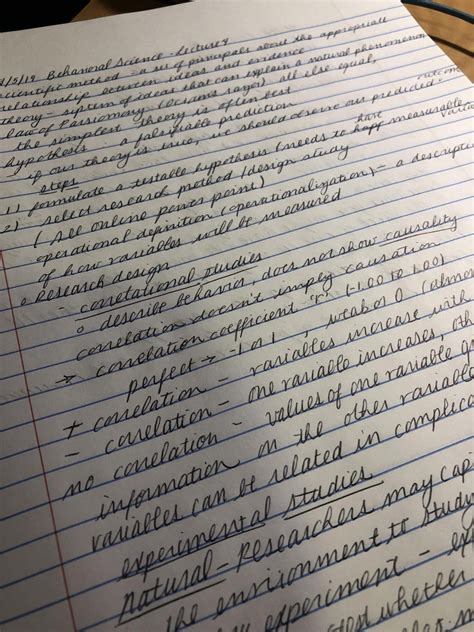 /5/19 Behavioral Science - Lecture 4
scientific method - a set of principles about the appropriate
relationship between ideas and evidence
theory - system of ideas that can explain a natural phenomenon
law of Parsimony (Occam's razor) all else equal,
the simplest theory is often best
hypothesis - a falsifiable prediction
if our theory is true, we should observe our predicted outcome
steps
1) formulate a testable hypothesis (needs to have measurable
2) select research method/design study
(All online power point)
operational definition (operationalization) = a descripti
of how variables will be measured
o Research design
- correlational studies
o describe behavior, does not show causality
correlation doesn't imply causation
→ correlation coefficient "r" (-1.00 to 1.00)
perfect → -1 or 1, weak or 0 (almo
+ correlation - variables increase with
- correlation - one variable increases, oth
no correlation - values of one variable
information on the other variable
variables can be related in complica
experimental studies
natural - researchers may capi
the environment to study
experiment - ex
whether